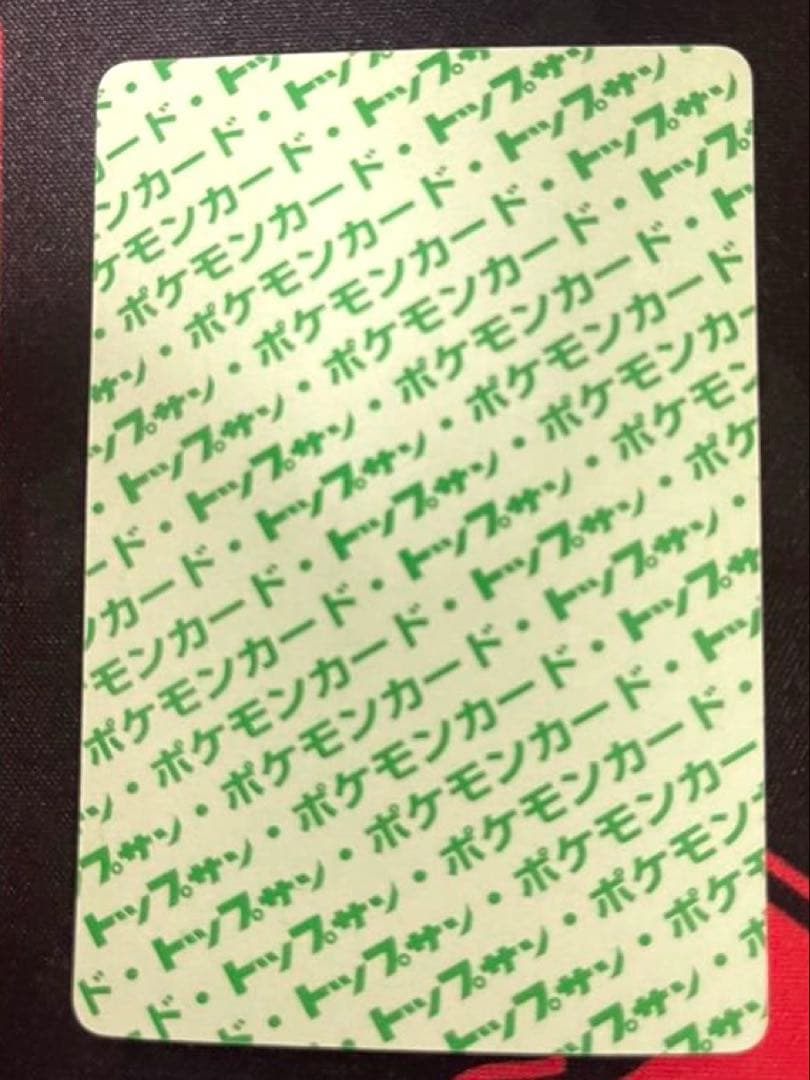 ・ト
ード・トッ
ンカード・トップ
ケモンカード・トップサ
・ポケモンカード・トップサン
サン・ポケモンカード・トップサン・
ップサン・ポケモンカード・トップサン
・トップサン・ポケモンカード・トップサ
ード・トップサン・ポケモンカード・ト
ンカード・トップサン・ポケモンカード
モンカード・トップサン・ポケモンカー
ポケモンカード・トップサン・ポケモン
ン・ポケモンカード・トップサン・ポケ
プサン・ポケモンカード・トップサン・
トップサン・ポケモンカード・トップサ
ド・トップサン・ポケモンカード・トッ
ド・トップサン・ポケモンカード・
ド・トップサン・ポケモンカー
・トップサン・ポケモン
トップサン・ポケ
ップサン・ポ
プサ